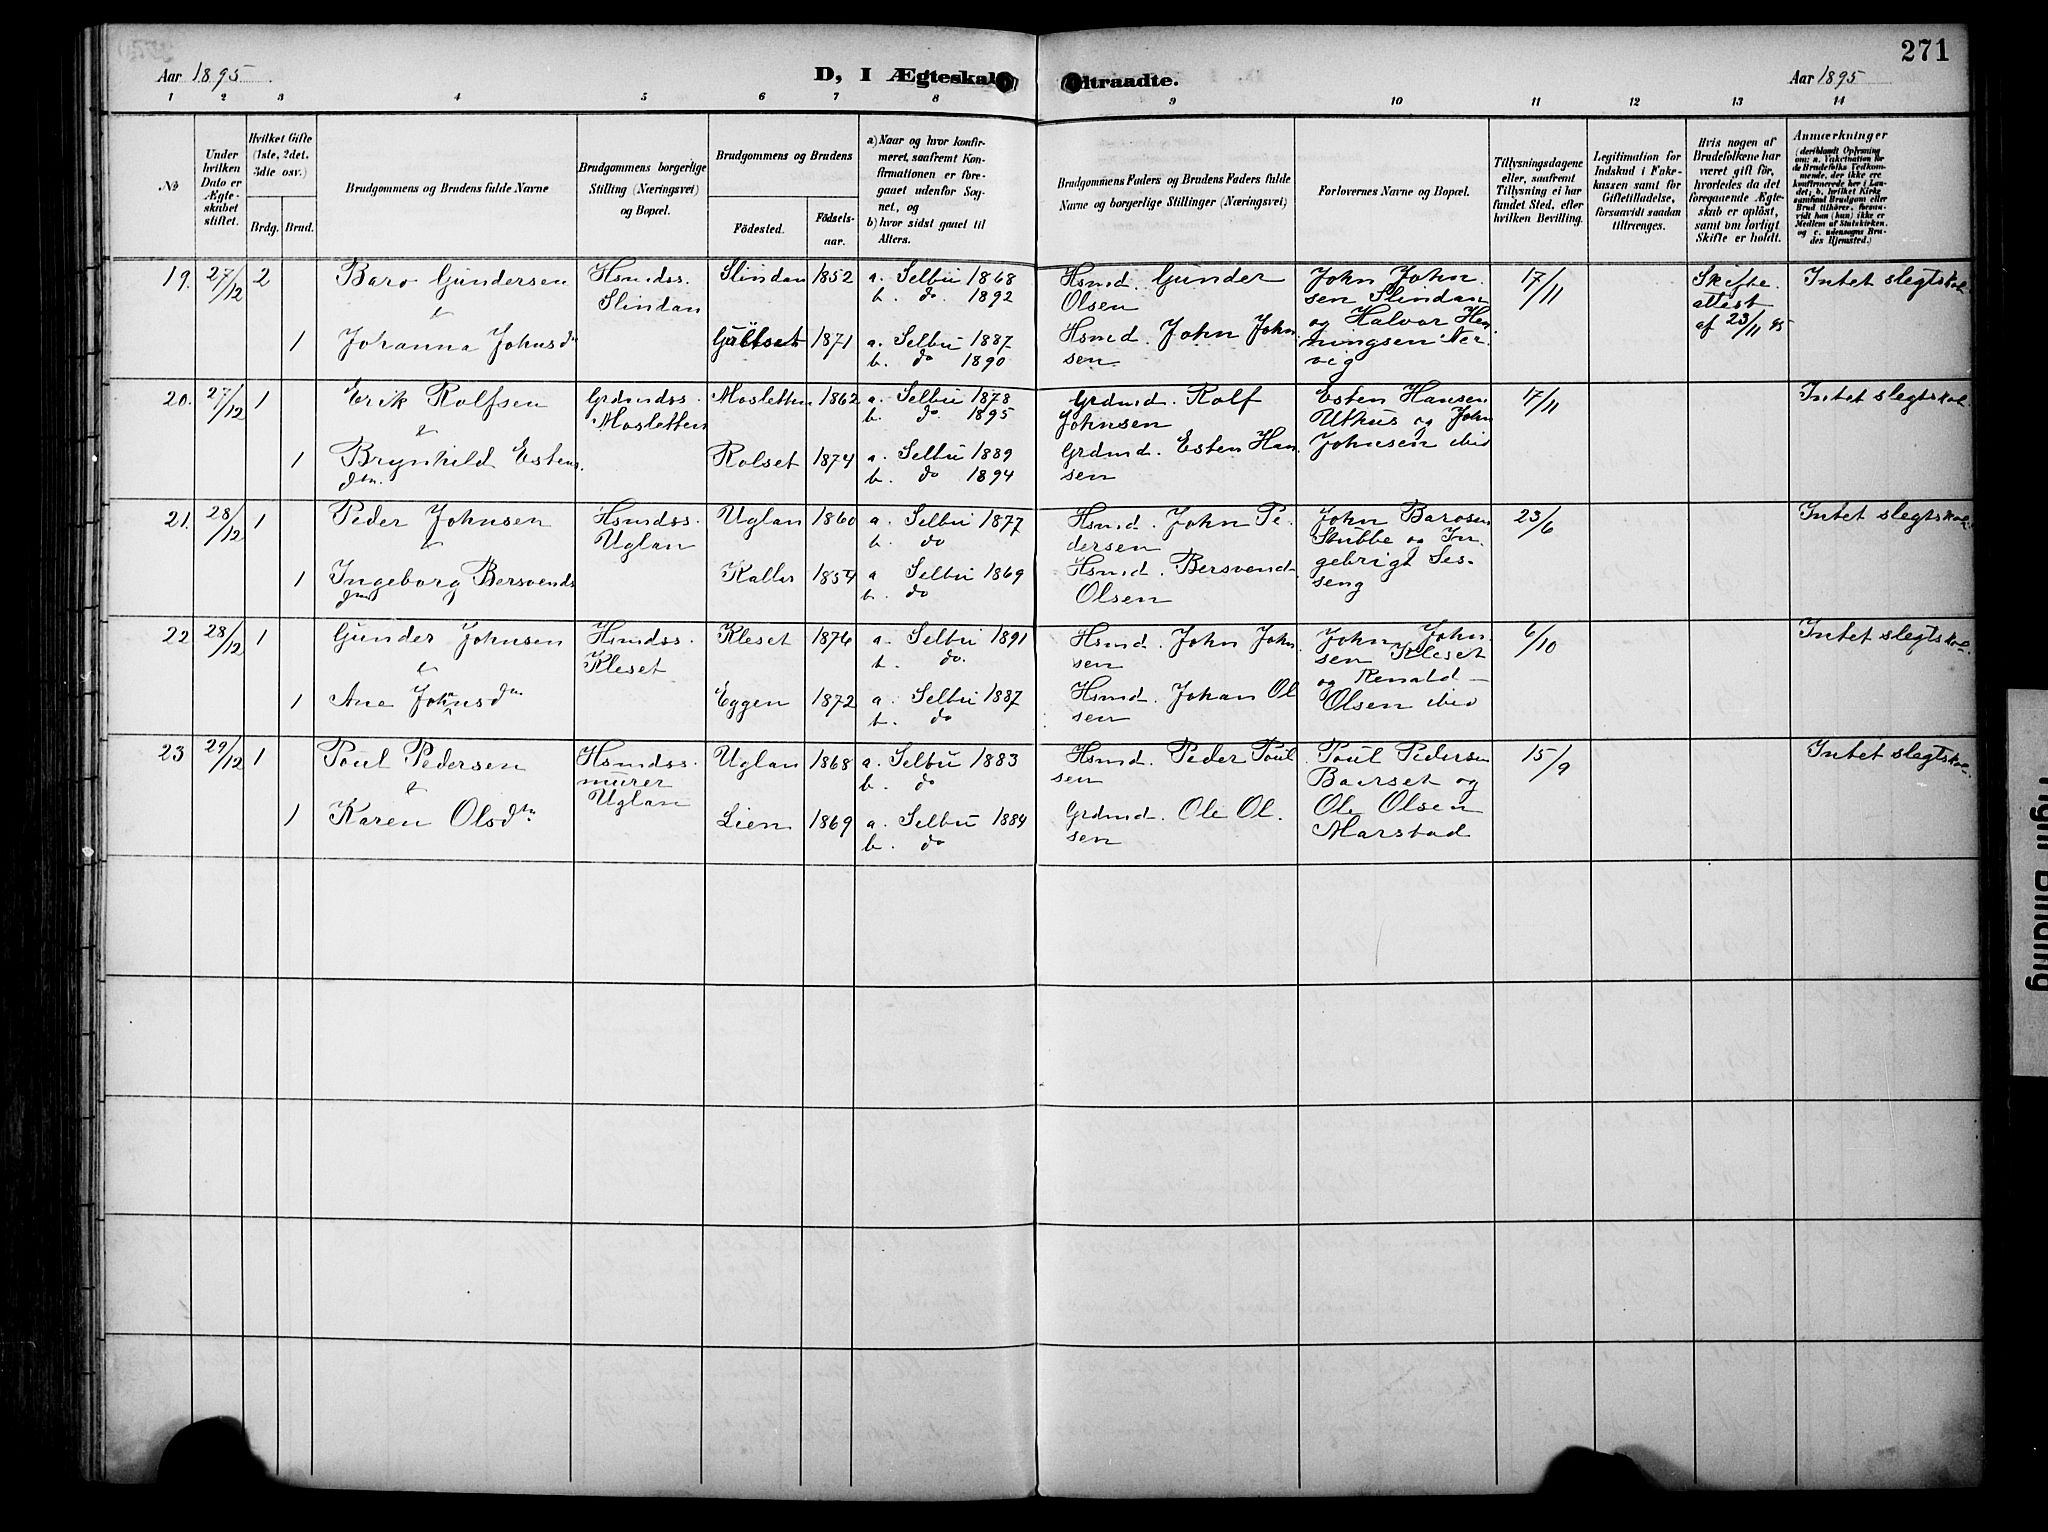 271
Aar 1895
D, I Ægteskab Indtraadte.
Aar 1895
1 2 3 4 5 6 7 8 9 10 11 12 13 14
№
Under hvilken Dato er Ægteskabet stiftet.
Hvilket Gifte (1ste, 2det, 3die osv.)
Brdg. Brud.
Brudgommens og Brudens fulde Navne
Brudgommens borgerlige Stilling (Næringsvei) og Bopæl.
Brudgommens og Brudens
Födested. Födselsaar.
a) Naar og hvor konfirmeret, saafremt Konfirmationen er foregaaet udenfor Sognet, og
b) hvor sidst gaaet til Alters.
Brudgommens Faders og Brudens Faders fulde Navne og borgerlige Stillinger (Næringsvei)
Forlovernes Navne og Bopæl.
Tillysningsdagene eller, saafremt Tillysning ei har fundet Sted, efter hvilken Bevilling.
Legitimation for Indskud i Fakekassen samt for Giftetilladelse, forsaavidt saadan tiltrænges.
Hvis nogen af Brudefolkene har været gift før, hvorledes da det foregaaende Ægteskab er oplöst, samt om lovligt Skifte er holdt.
Anmærkninger
19. 27/12 2 Baro Gundersen Hsmdss. Slindan Slindan 1852 a. Selbu 1868 b. do. 1892 Hsmd. Gunder Olsen John Johnsen Slindan og Halvor Henningsen Nervig 17/11 Skifteattest af 23/11 95 Intet slegtskab.
&
1 Johanna Johnsdn Gulset 1871 a. Selbu 1887 b. do 1890 Hsmd. John Johnsen
20. 27/12 1 Erik Rolfsen Grdmdss. Mosletten Mosletten 1862 a. Selbu 1878 b. do. 1895 Grdmd. Rolf Johnsen Esten Hansen Uthus og John Johnsen ibid 17/11 Intet slegtskab.
&
1 Brynhild Estensdtn. Rolset 1874 a. Selbu 1889 b. do 1894 Grdmd. Esten Hansen
21. 28/12 1 Peder Johnsen Hsmdss. Uglan Uglan 1860 a. Selbu 1877 b. do Hsmd. John Pedersen John Barosen Stubbe og Ingebrigt Sesseng 23/6 Intet slegtskab
&
1 Ingeborg Bersvendsdtn Kallar 1854 a Selbu 1869 b. do Hsmd. Bersvend Olsen
22 28/12 1 Gunder Johnsen Hsmdss. Kleset Kleset 1876 a. Selbu 1891 b. do. Hsmd. John Johnsen John Johnsen Kleset og Renald Olsen ibid 6/10 Intet slegtskab.
&
1 Ane Johansdtn Eggen 1872 a. Selbu 1887 b. do Hsmd. Johan Olsen
23 29/12 1 Poul Pedersen Hsmdss. murer Uglan Uglan 1868 a. Selbu 1883 b. do Hsmd. Peder Poulsen Poul Pedersen Baarset og Ole Olsen Marstad 15/9 Intet slegtskab.
&
1 Karen Olsdtn. Lien 1869 a. Selbu 1884 b. do Grdmd. Ole Olsen